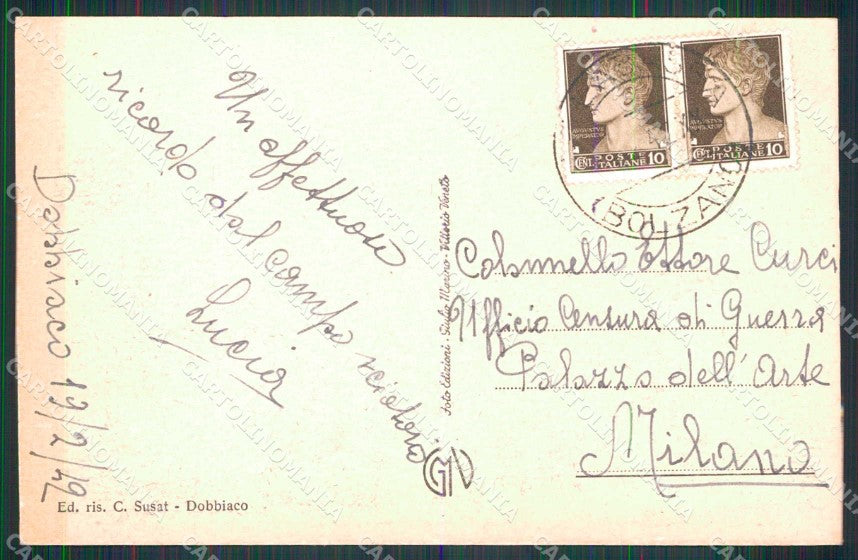 Dobbiaco 19/2/42
Un affettuoso
ricordo dal campo sciatorio
Lucia
Ed. ris. C. Susat - Dobbiaco
Foto Edizioni - Giulio Marino - Vittorio Veneto
GMV
AVGVSTVS
IMPERATOR
POSTE
CENT. ITALIANE 10
AVGVSTVS
IMPERATOR
POSTE
CENT. ITALIANE 10
(BOLZANO)
Colonnello Ettore Curci
Ufficio Censura di Guerra
Palazzo dell'Arte
Milano
CARTOLINOMANIA